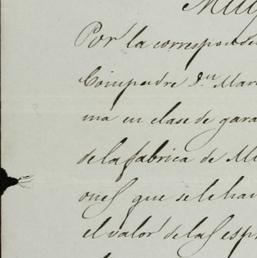 Muy
Por la correspond
Compadre Dn. Mar
ma en clase de gara
de la fabrica de Mi
ones que se le ha
el valor de las esp